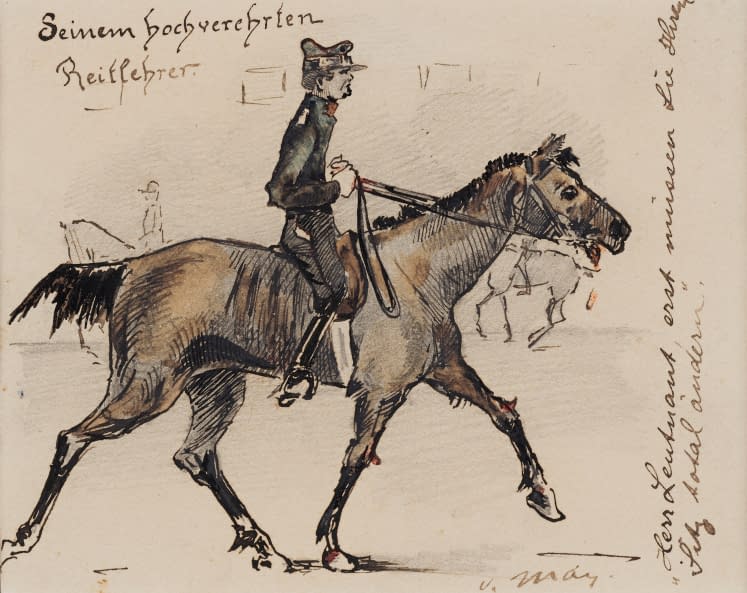 Seinem hochverehrten
Reitlehrer.
„Herr Leutnant, erst müssen Sie Ihren
Sitz total ändern".
v. May.